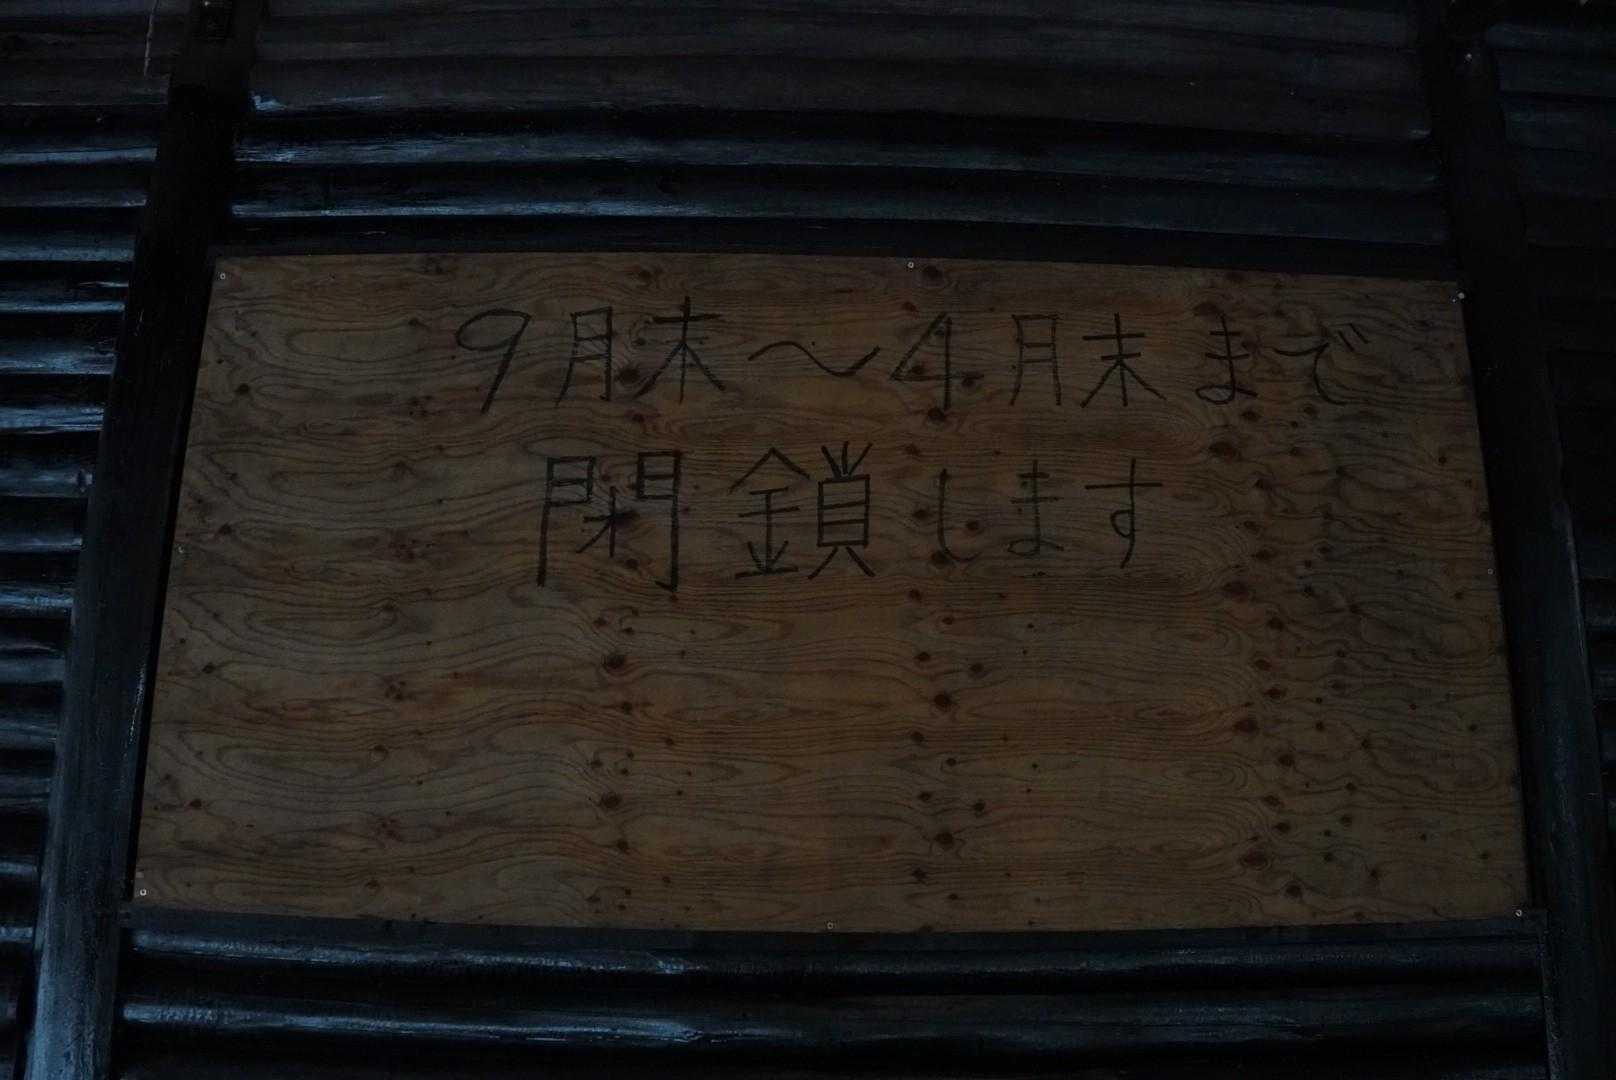 9月末～4月末まで
閉鎖します